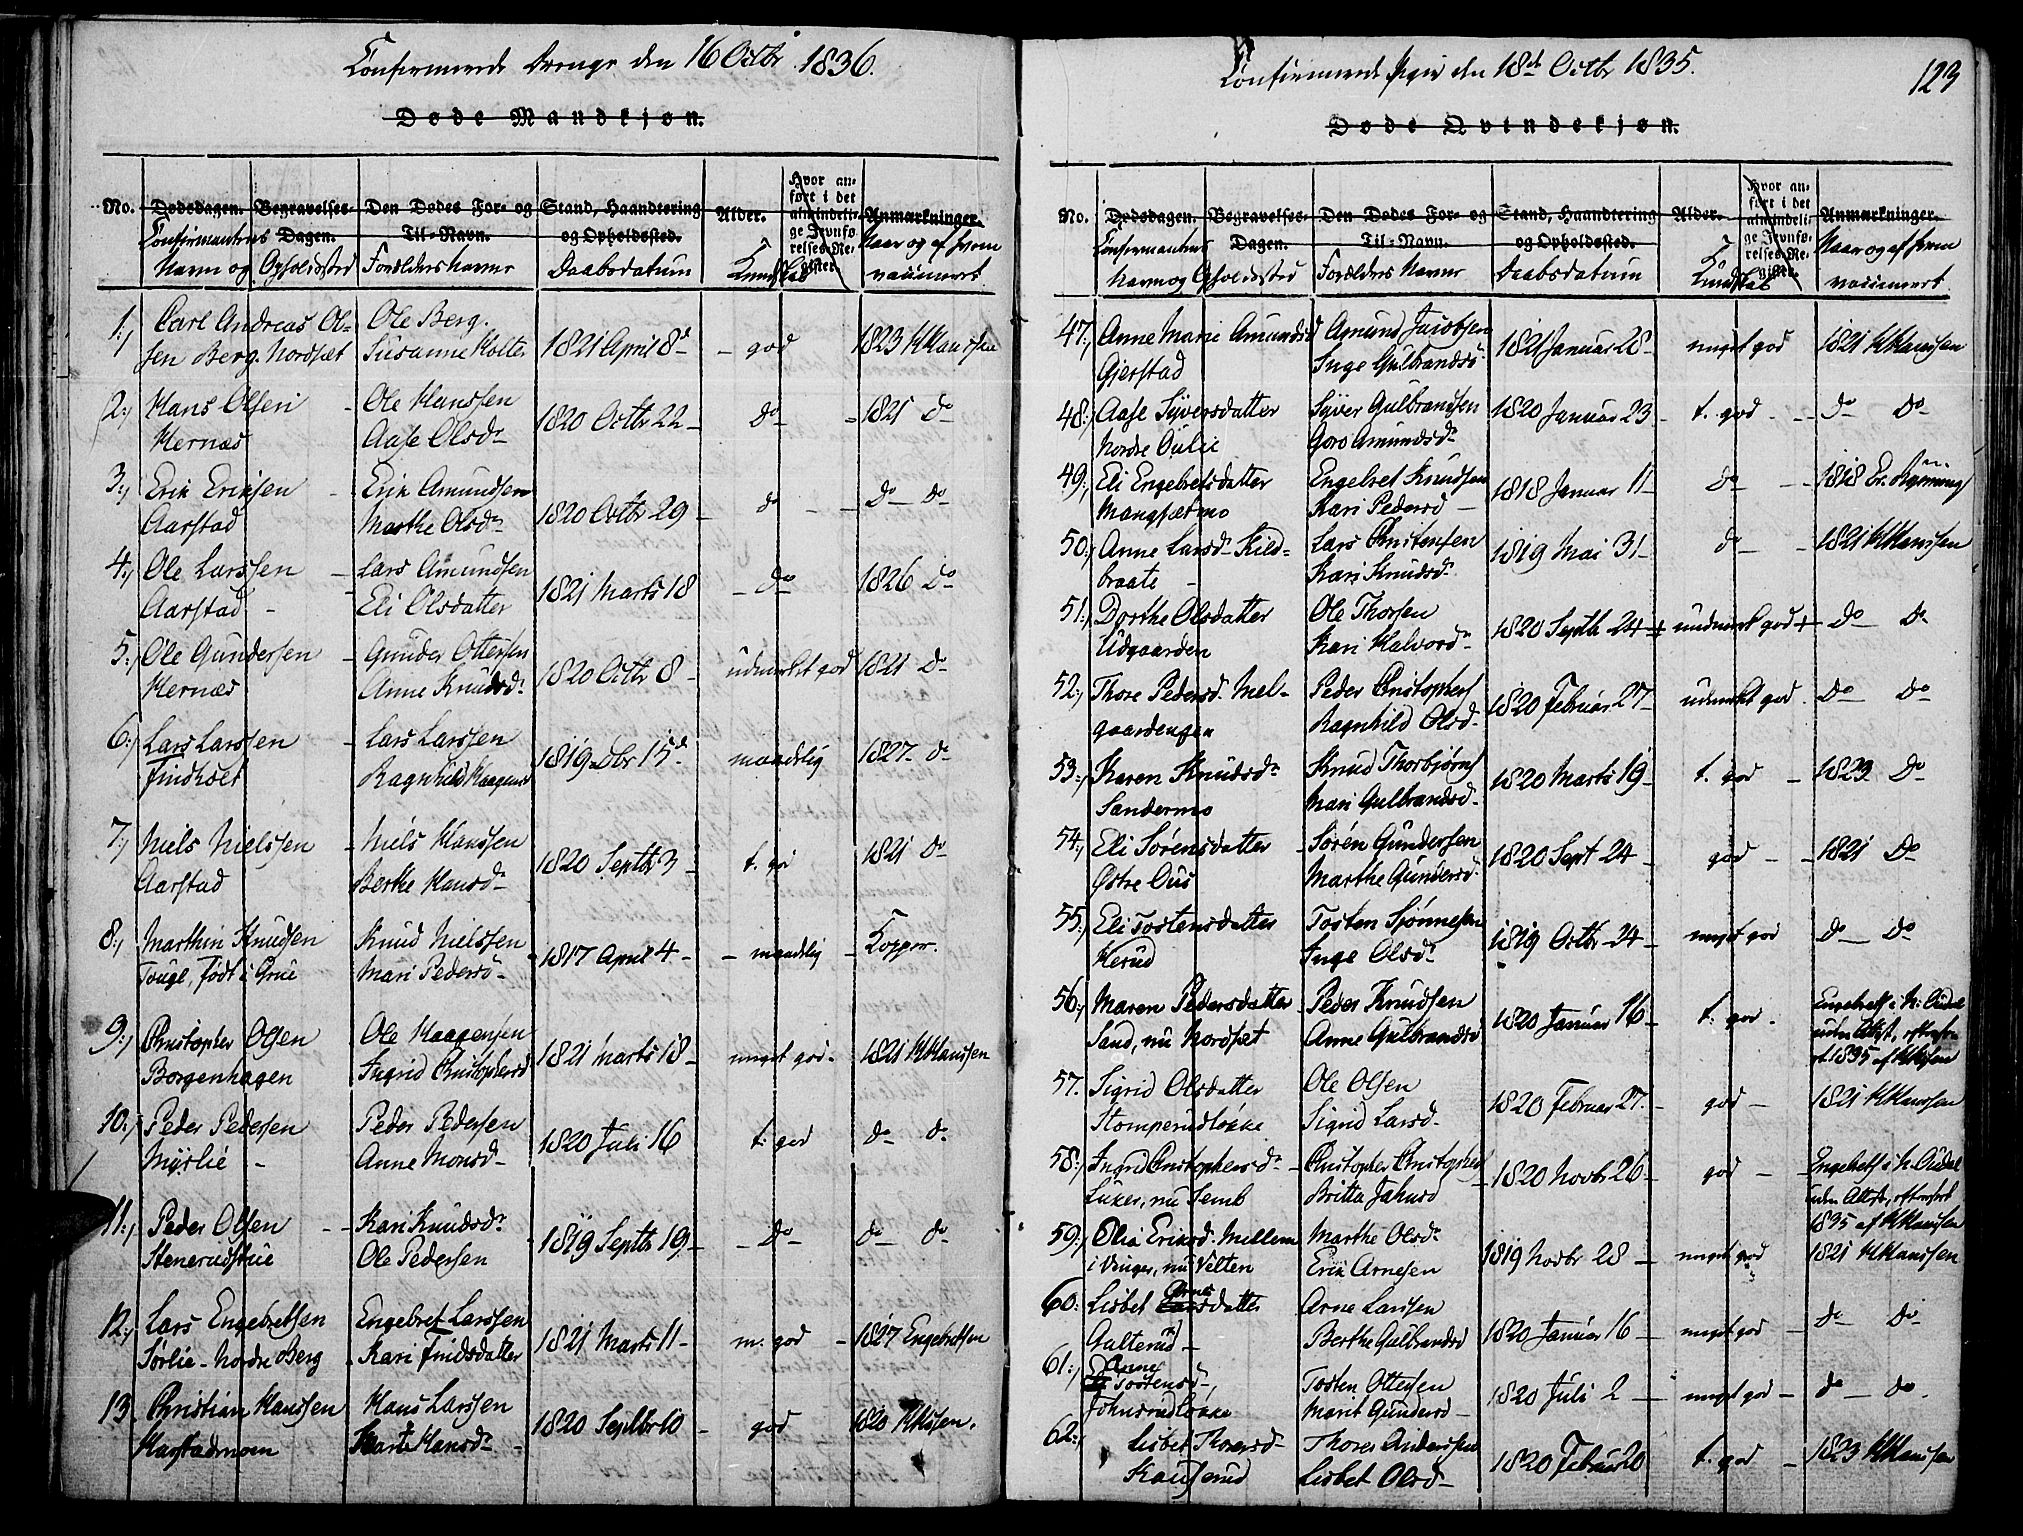 Confirmerede Drenge den 16 Octbr 1836.
Døde Mandkjøn.
No. Dødsdagen. Begravelses-Dagen. Den Dødes For- og Til-Navn. Stand, Haandtering og Opholdssted. Alder. Hvor anført i det almindelige Jevnførelses-Register. Anmærkninger.
Confirmanternes Navn og Opholdssted Forældrenes Navne Daabsdatum Kundskab Naar og af hvem vaccineret
1, Carl Andreas Ol- Ole Berg.
sen Berg. Nordsæt Susanne Holter 1821 April 8d - god 1823 HHanssen
2, Hans Olsen Ole Hanssen
Hernæs Aase Olsdr 1820 Octbr 22 - do - 1821 do
3, Erik Eriksen Erik Amundsen
Aarstad Marthe Olsdr 1820 Octbr 29 - do - do do
4, Ole Larssen Lars Amundsen
Aarstad Eli Olsdatter 1821 Marts 18 - do 1826 do
5, Ole Gundersen Gunder Ottersen
Hernæs Anne Knudsdr 1820 Octbr 8 - udmærket god 1821 do
6, Lars Larssen Lars Larssen
Findholt Ragnhild Haagensd 1819 Dbr 15d maadelig 1827 do
7, Niels Nielssen Niels Hanssen
Aarstad Berthe Hansdr 1820 Septbr 3 - t. god 1821 do
8, Marthin Knudsen Knud Nielssen
født i Grue Mari Pedersd 1817 April 4 - maadelig - Kopper.
9, Christopher Olsen Ole Haagensen
Borgenhagen Ingrid Christophersd 1821 Marts 18 - meget god - 1821 HHanssen
10, Peder Pedersen Peder Pedersen
Myrlie Anne Monsd 1820 Juli 16 t. god do do
11, Peder Olsen Kari Knudsdr
Stenerudstue Ole Pedersen 1819 Septbr 19 - do do do
12, Lars Engebretsen Engebret Larssen
Sørlie - Nordre Berg Kari Findsdatter 1821 Marts 11 - m. god - 1827 Engebretsen
13 Christian Hanssen Hans Larssen
Harstadmoen Marte Hansdr 1820 Septbr 10 - god 1820 HHssen.
Confirmerede Piger den 18d Octbr 1835.
123
Døde Qvindekjøn.
No. Dødsdagen. Begravelses-Dagen. Den Dødes For- og Til-Navn. Stand, Haandtering og Opholdssted. Alder. Hvor anført i det almindelige Jevnførelses-Register. Anmærkninger.
Confirmanternes Navn og Opholdssted Forældrenes Navne Daabsdatum Kundskab Naar og af hvem vaccineret
47, Anne Marie Amundsd Amund Jacobsen
Gjerstad Inge Gulbrandsd 1821 Januar 28 - meget god 1821 HHanssen
48, Aase Syversdatter Syver Gulbrandsen
Nordre Oulie Goro Amundsdr 1820 Januar 23 - t. god - do do
49, Eli Engebretsdatter Engebret Knudsen
Mangsætmo Kari Pedersd 1818 Januar 11 - do - 1818 Er.
50, Anne Larsd Kild- Lars Christensen
braate Kari Knudsdr 1819 Mai 31 - do - 1821 HHanssen
51, Dorthe Olsdatter Ole Thorsen
Udgaarden Kari Halvordr 1820 Septbr 24 + udmærket god + do do
52, Thore Pedersd. Mel- Peder Christophers
gaardengen Ragnhild Olsd. 1820 Februar 27 - udmærket god do do
53, Karen Knudsdr Knud Thorbjørns
Sandermo Mari Gulbrandsd 1820 Marts 19 - t. god - 1823 do
54, Eli Sørensdatter Sørén Gundersen
Østre Ous Marthe Gundersd 1820 Sept 24 - god - 1821 do
55, Eli Tostensdatter Tosten Sjønnesen
Kerud Inge Olsdr 1819 Octbr 24 - meget god do do
56, Maren Pedersdatter Peder Knudsen Engebrets i N. Oudal
Sand, nu Nordsæt Anne Gulbrandsd 1820 Januar 16 - t. god - uden Attest,
1835 af HHssen
57. Sigrid Olsdatter Ole Olsen
Stomperudløkke Sigrid Larsd. 1820 Februar 27 - god - 1821 HHanssen
58, Ingrid Christophersdr Christopher Christophers Engebrets i N. Oudal
Luker, nu Semb Britta Jahnsd 1820 Novbr 26 - god - uden Attest,
1835 af HHanssen
59, Olia Eriksd. Mellem Marthe Olsdr
i Vinger, nu Velten Erik Arnesen 1819 Novbr 28 - meget god 1821 HHanssen
60, Lisbet Arnesdatter Arne Larssen
Galterud Berthe Gulbrandsd 1820 Januar 16 - meget god - do do
61, Anne Tostensd. Tosten Ottersen
Johnsrudløkke Marit Gundersd 1820 Juli 2 - meget god - do do.
62, Lisbet Thoresd. Thores Anderssen
Kauserud Lisbet Olsd. 1820 Februar 20 t. god - 1823 HHanssen